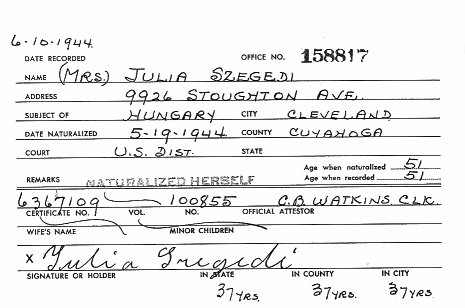 6-10-1944
DATE RECORDED OFFICE NO. 158817
NAME (MRS.) JULIA SZEGEDI
ADDRESS 9926 STOUGHTON AVE.
SUBJECT OF HUNGARY CITY CLEVELAND
DATE NATURALIZED 5-19-1944 COUNTY CUYAHOGA
COURT U.S. DIST. STATE
Age when naturalized 51
REMARKS NATURALIZED HERSELF Age when recorded 51
6367109 100855 C.B. WATKINS, CLK.
CERTIFICATE NO. VOL. NO. OFFICIAL ATTESTOR
WIFE'S NAME MINOR CHILDREN
X Julia Szegedi
SIGNATURE OR HOLDER IN STATE IN COUNTY IN CITY
37 YRS. 37 YRS. 37 YRS.